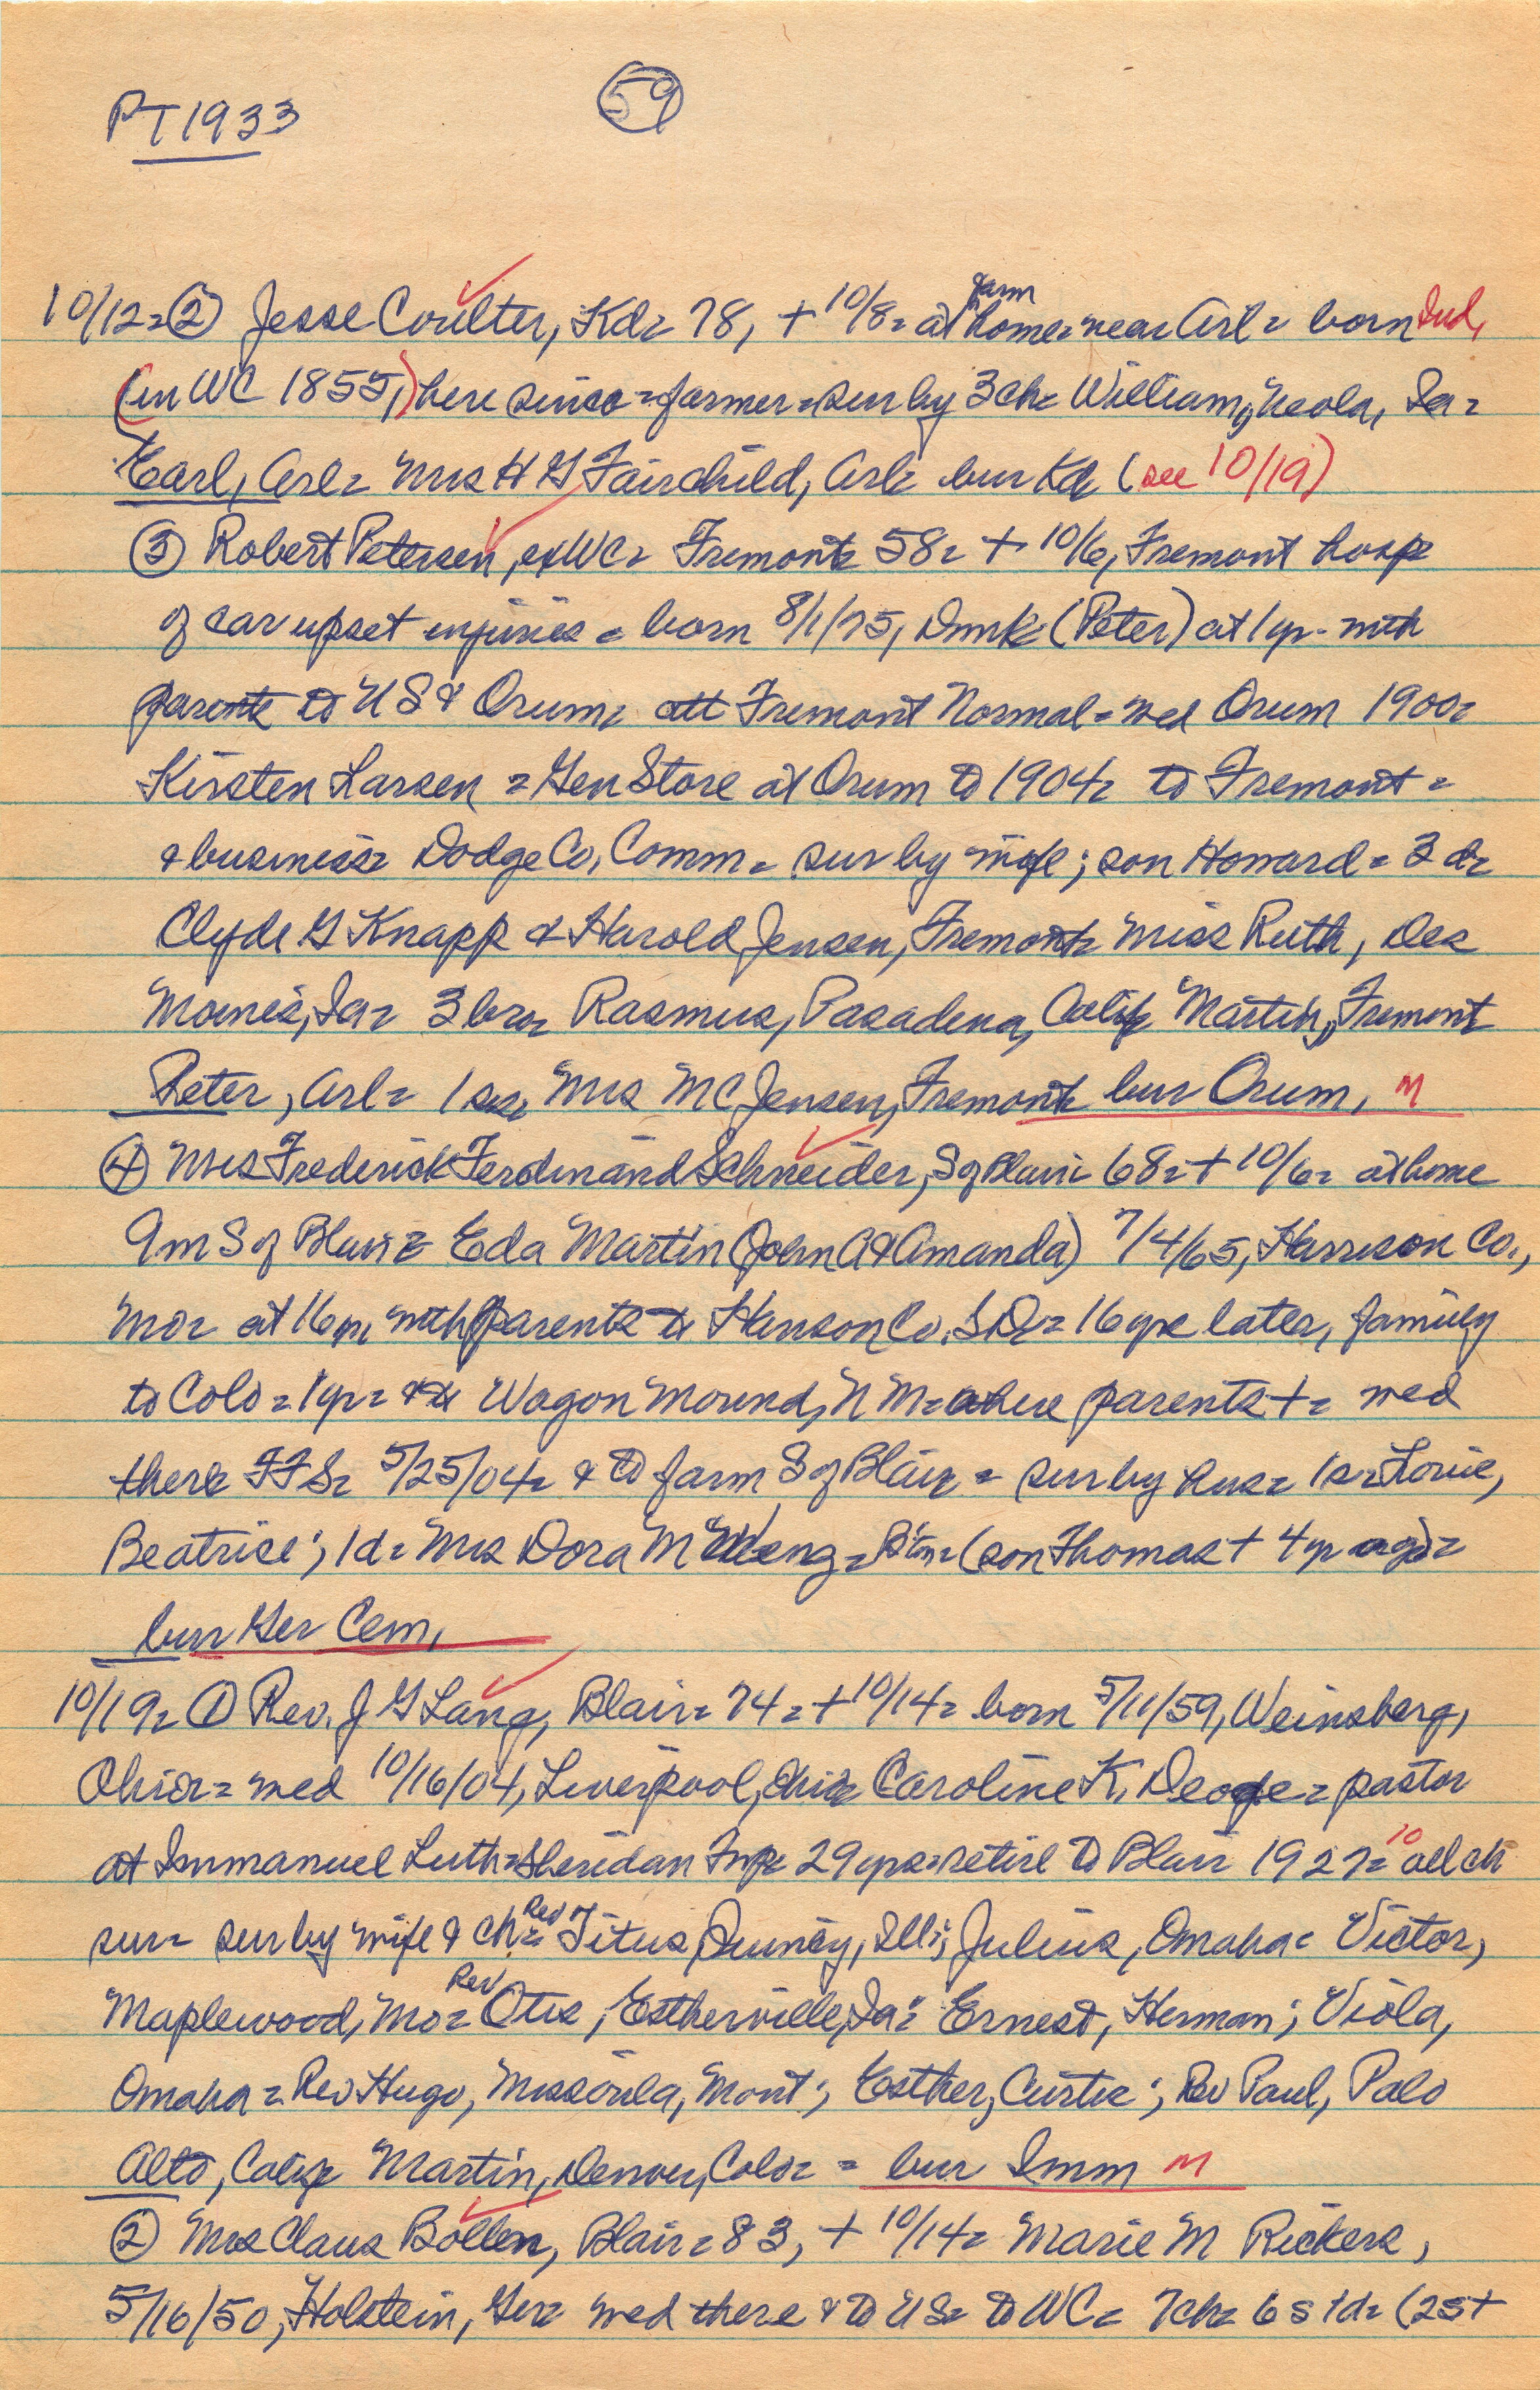 PT1933
59
10/12= ② Jesse Coulter, Kd= 78, + 10/8= at farm home= near Arl= born Ind,
(in WC 1855,) here since= farmer= sur by 3ch= William, Neola, Ia=
Earl, Arl= Mrs H G Fairchild, Arl= bur Kd= (see 10/19)
③ Robert Petersen, exWC= Fremont= 58= + 10/6, Fremont hosp=
of car upset injuries= born 8/1/75, Dmk= (Peter) at 1yr. with
parents to US & Orum= att Fremont Normal= wed Orum 1900=
Kirsten Larsen= Gen Store at Orum to 1904= to Fremont=
& business= Dodge Co, Comm= sur by wife; son Howard= 3 d=
Clyde G Knapp & Harold Jensen, Fremont= Miss Ruth, Des
Moines, Ia= 3 bro= Rasmus, Pasadena, Calif= Martin, Fremont
Peter, Arl= 1 sis= Mrs MC Jensen, Fremont= bur Orum, M
④ Mrs Frederick Ferdinand Schneider, S of Blair= 68= + 10/6= at home
9m S of Blair= Eda Martin (John A & Amanda) 7/4/65, Harrison Co.,
Mo= at 16yr, with parents to Hanson Co, SD= 16yrs later, family
to Colo= 1yr= & to Wagon Mound, N M= where parents += wed
there FFS= 5/25/04= & to farm S of Blair= sur by hus= 1s= Louie,
Beatrice; 1d= Mrs Dora M = Btn= (son Thomas + 4yr ago)=
bur Ger Cem,
10/19= ① Rev. J G Lang, Blair= 74= + 10/14= born 5/11/59, Weinsberg,
Ohio= wed 10/16/04, Liverpool, Ohio= Caroline K, = pastor
at Immanuel Luth= Sheridan Twp= 29yrs= retire to Blair 1927= 10 all ch
sur= sur by wife & ch= Rev Titus, , Ill; Julius, Omaha= Victor,
Maplewood, Mo= Rev Otis, Estherville, Ia= Ernest, Herman; Viola,
Omaha= Rev Hugo, Missoula, Mont; Esther, Curtis; Rev Paul, Palo
Alto, Calif= Martin, Denver, Colo= = bur Imm M
② Mrs Claus Bollen, Blair= 83, + 10/14= Marie M Rickers,
5/16/50, Holstein, Ger= wed there & to US= to WC= 7ch= 6s 1d= (2s+